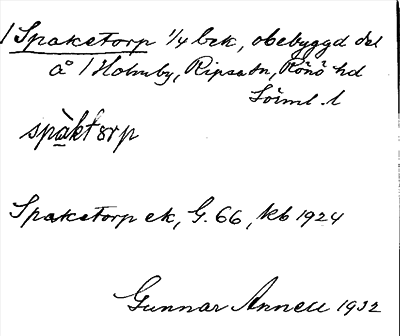 / Spaketorp 1/4 bek, obebyggd del
å / Holmby, Ripsa sn, Rönö hd
Söml. l
spàktorp
Spaketorp ek, G. 66, kb 1924
Gunnar Annell 1932